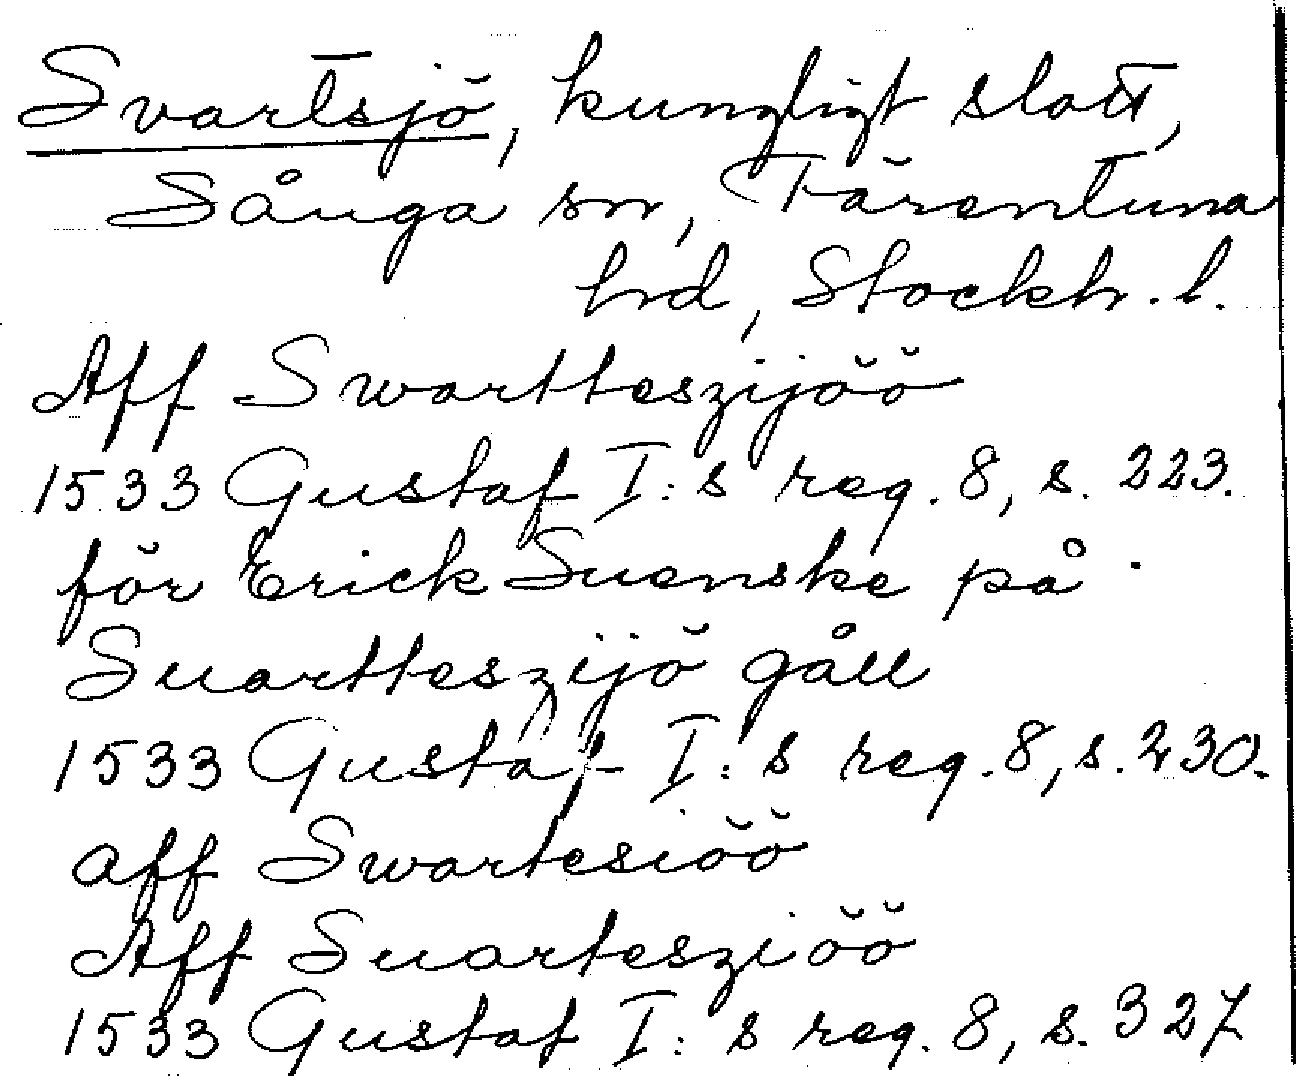 Svartsjö, kungligt slott,
Sånga sn, Färentuna
hrd, Stockh. l.
Aff Swartteszijöö
1533 Gustaf I:s reg. 8, s. 223.
för Erick Suenske på
Suartteszijö gåll
1533 Gustaf I:s reg. 8, s. 230.
aff Swartesiöö
Aff Suartesziöö
1533 Gustaf I:s reg. 8, s. 327